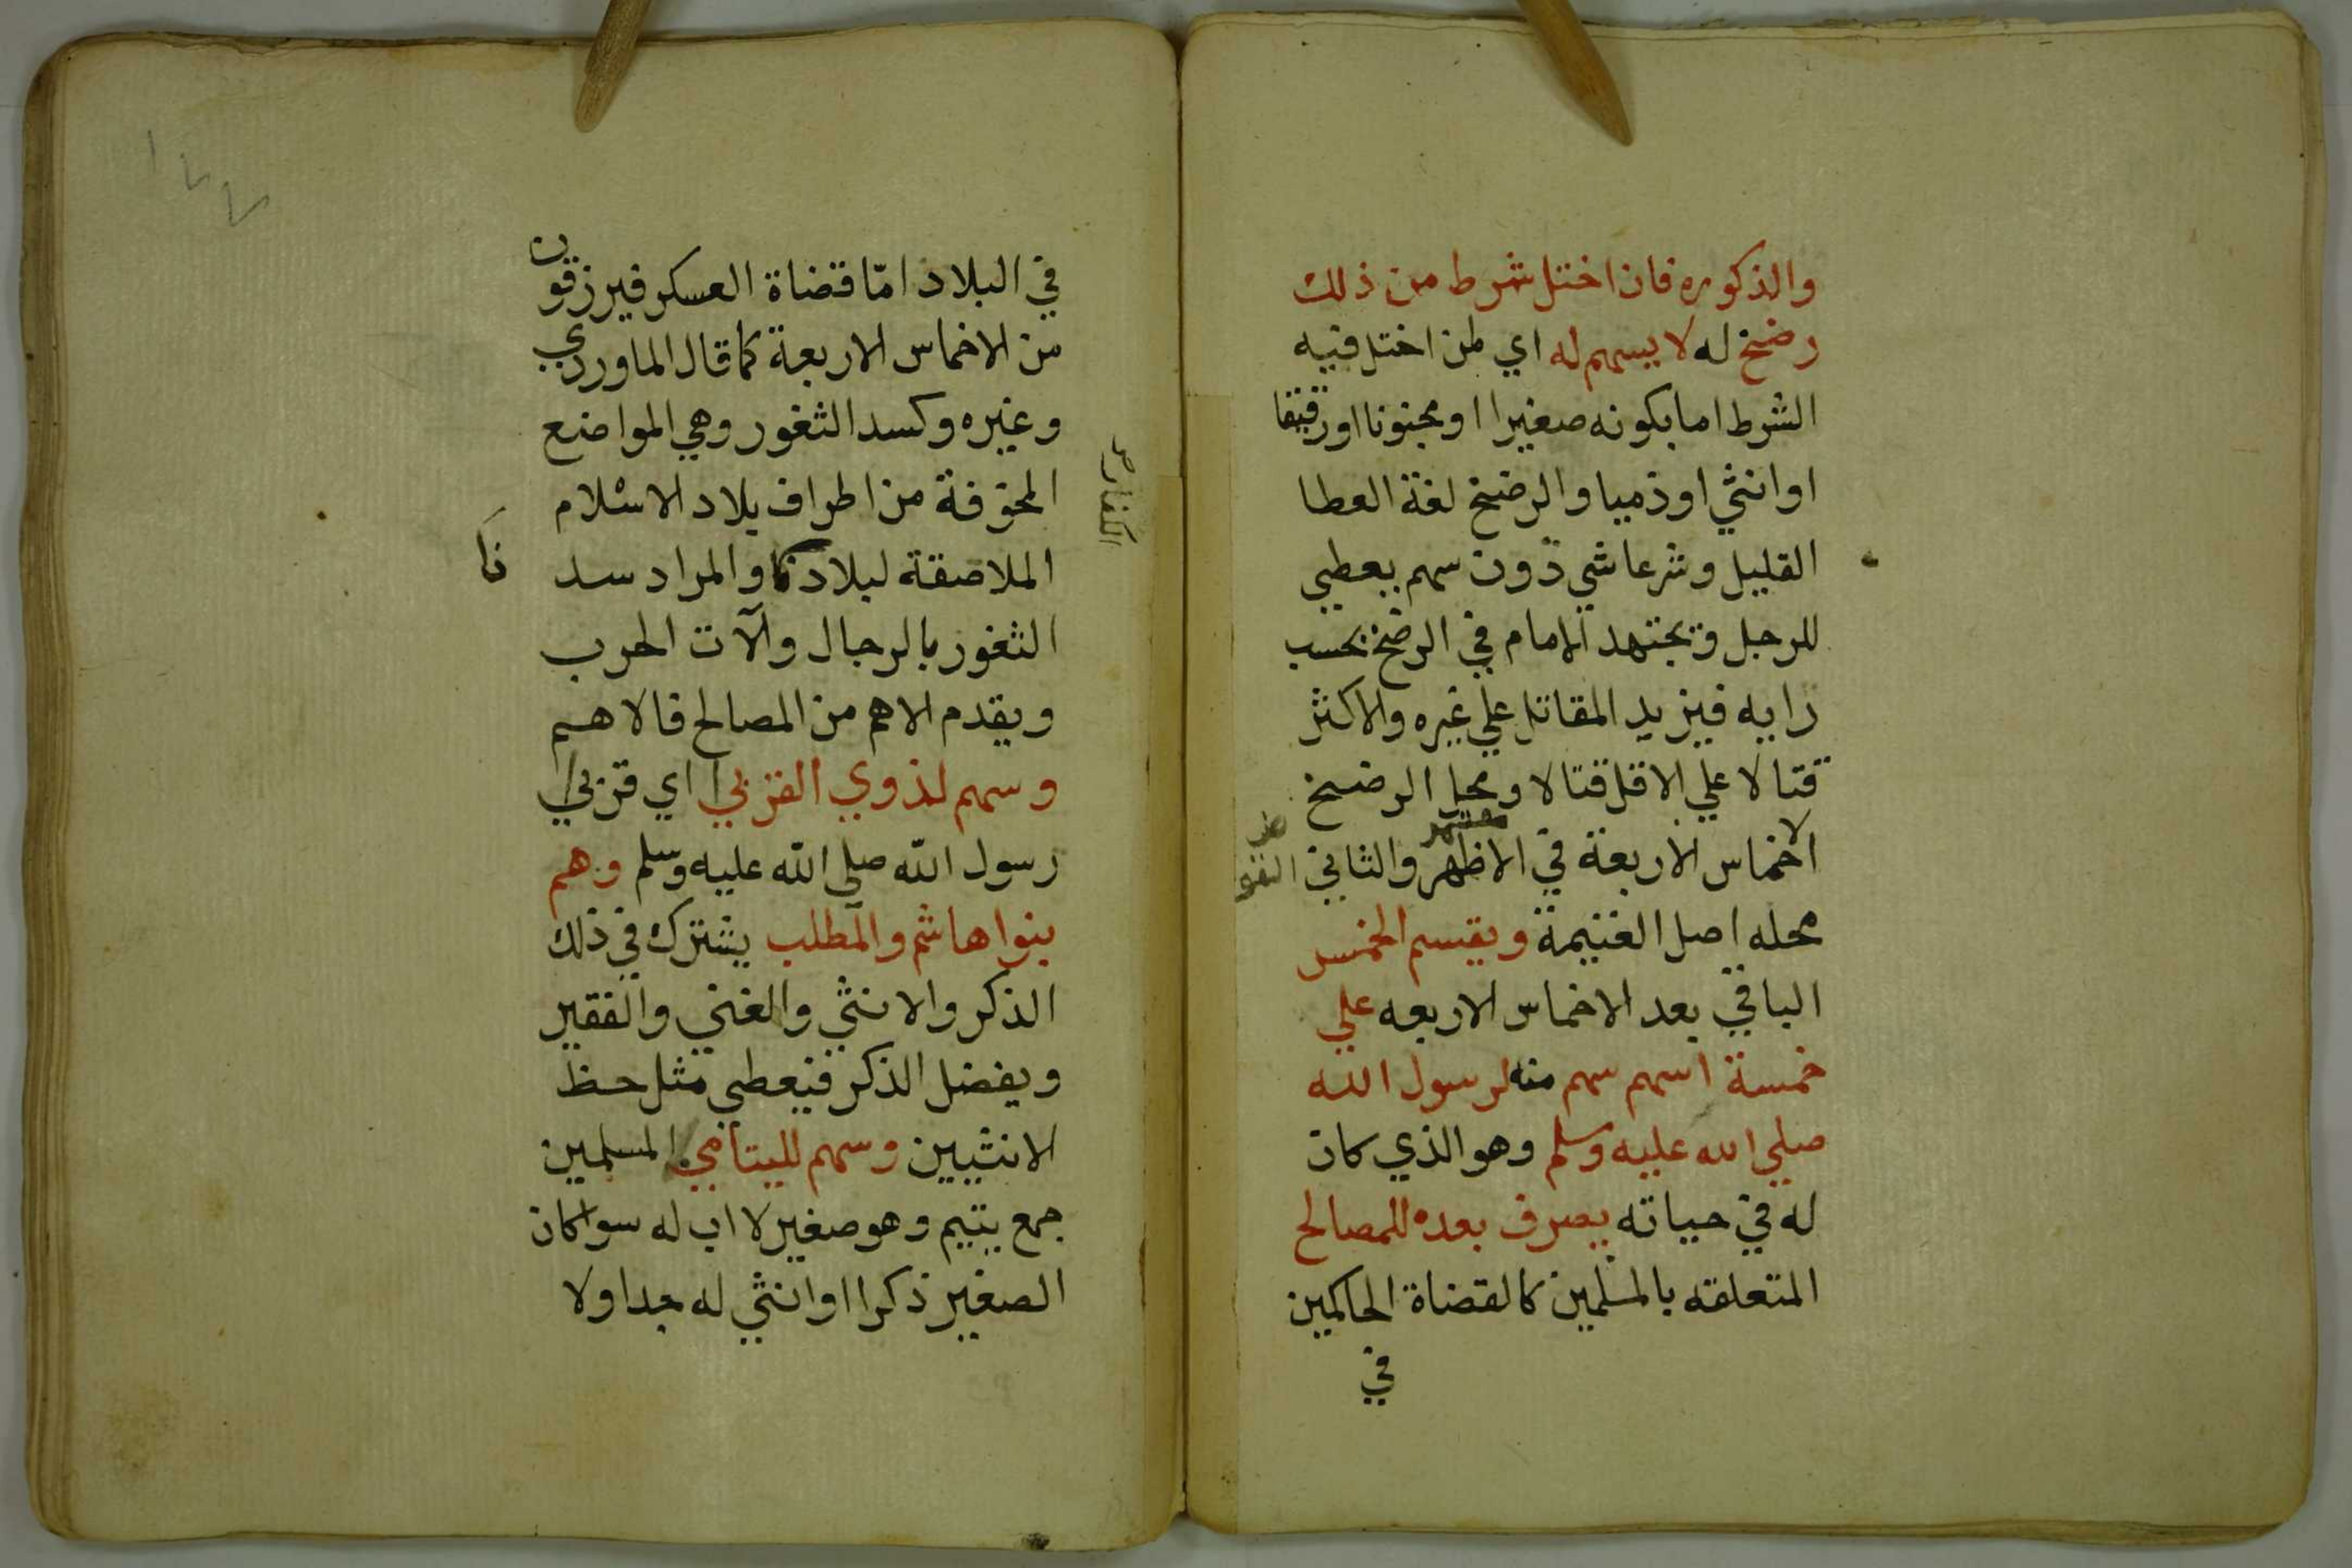 والذكوره فان اختل شرط من ذلك
رضخ له لا يسهم له اي لمن اختل فيه
الشرط اما بكونه صغيرا او مجنونا او رقيقا
او انثي او ذميا والرضخ لغة العطا
القليل وشرعا شي دون سهم يعطي
للرجل ويجتهد الامام في الرضخ بحسب
رايه فيزيد المقاتل علي غيره والاكثر
قتالا علي الاقل قتالا ومحل الرضخ
الاخماس الاربعة في الاظهر والثاني
معتمد
محله اصل الغنيمة ويقسم الخمس
الباقي بعد الاخماس الاربعه علي
خمسة اسهم سهم منه لرسول الله
صلي الله عليه وسلم وهو الذي كان
له في حياته يصرف بعده للمصالح
المتعلقه بالمسلمين كالقضاة الحاكمين
في
١٧٧
في البلاد امّا قضاة العسكر فيرزقون
من الاخماس الاربعة كما قال الماوردي
وغيره وكسد الثغور وهي المواضع
المخوفة من اطراف بلاد الاسلام
الملاصقة لبلادنا والمراد سد
نا
الكفار
الثغور بالرجال وآلات الحرب
ويقدم الاهم من المصالح فالاهم
وسهم لذوي القربي اي قربي
رسول الله صلي الله عليه وسلم وهم
بنوا هاشم والمطلب يشترك في ذلك
الذكر والانثي والغني والفقير
ويفضل الذكر فيعطي مثل حظ
الانثيين وسهم لليتامي المسلمين
جمع يتيم وهو صغير لا اب له سوا كان
الصغير ذكرا او انثي له جد اولا